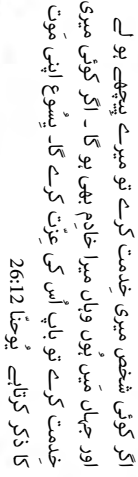 اگر کوئی شخص میری خِدمت کرے تو میرے پیچھے ہو لے
اور جہاں مَیں ہُوں وہاں میرا خادِم بھی ہو گا ۔ اگر کوئی میری
خِدمت کرے تو باپ اُس کی عِزّت کرے گا۔ یِسُوع اپنی مَوت
کا ذکر کرتاہے یُوحنّا 26:12